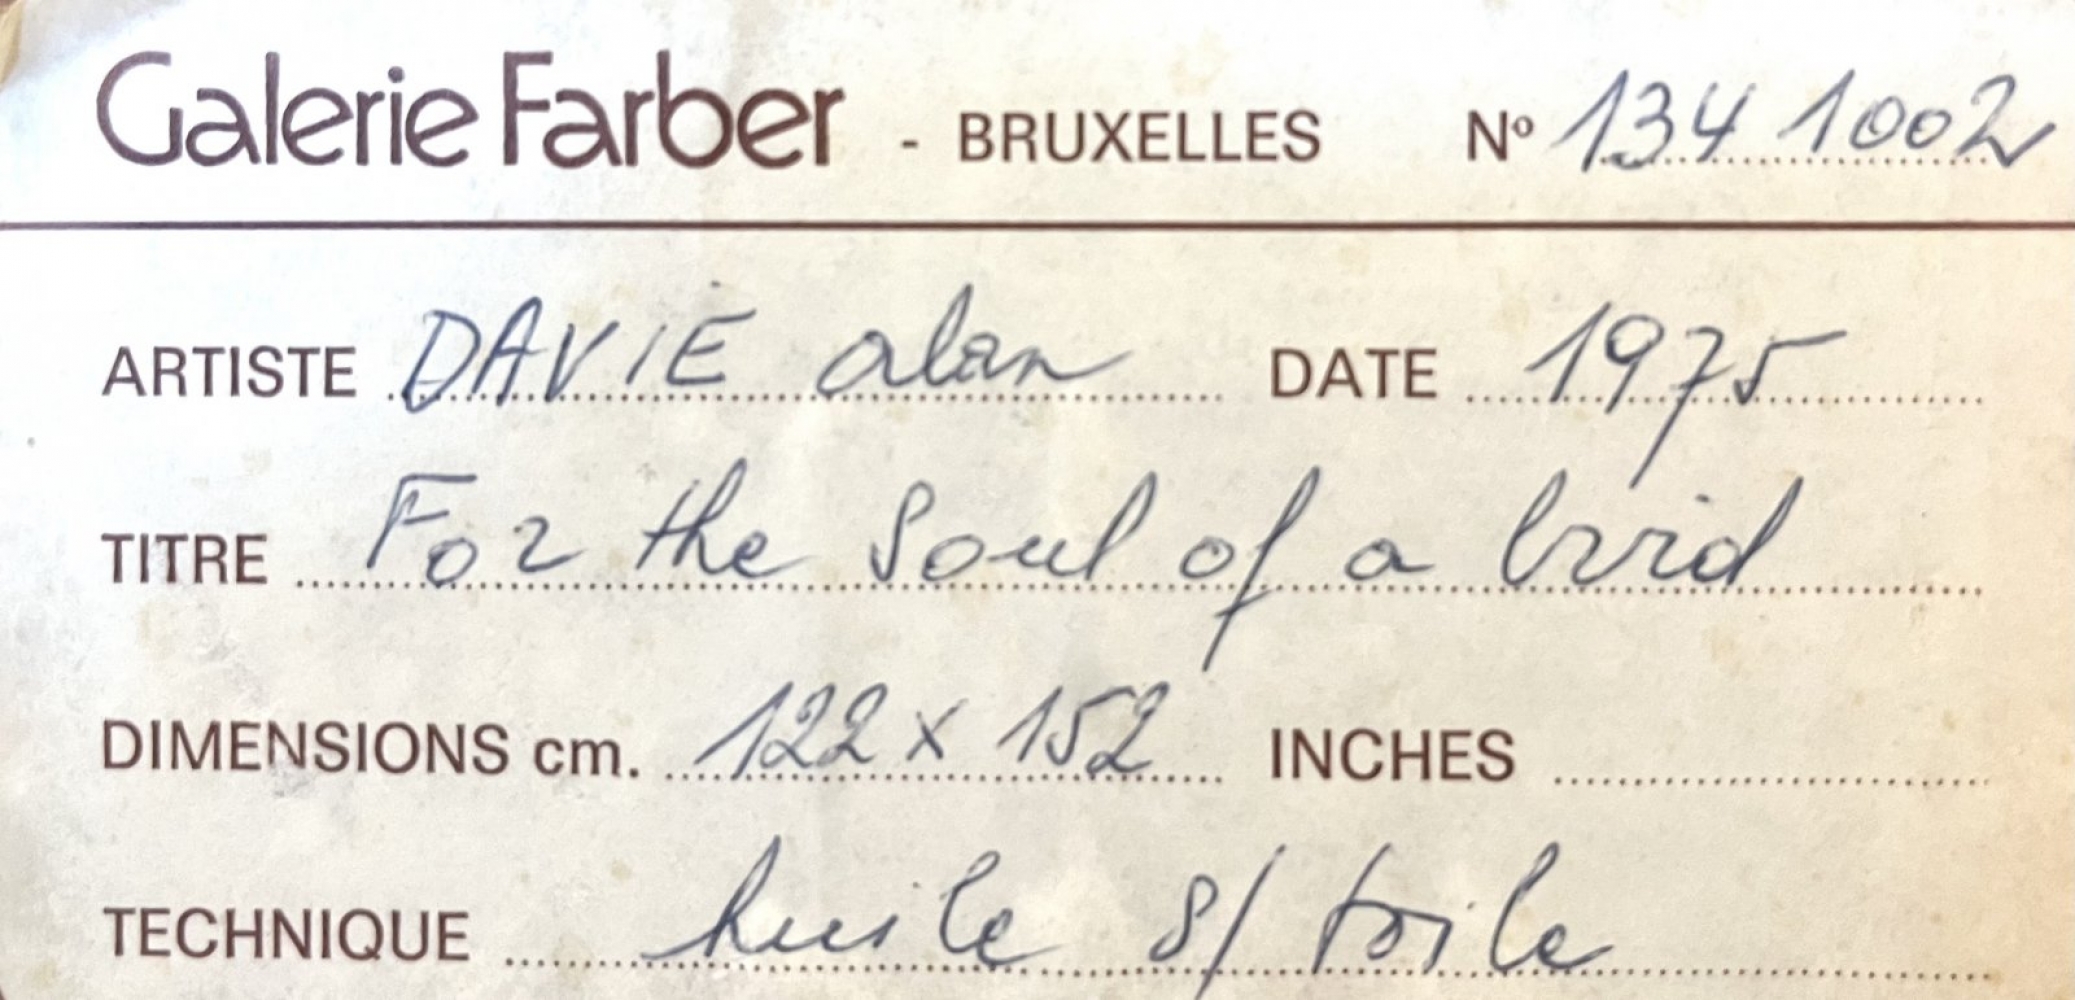 Galerie Farber - BRUXELLES Nº 134 1002
ARTISTE DAVIE alan DATE 1975
TITRE For the Soul of a bird
DIMENSIONS cm. 122 x 152 INCHES
TECHNIQUE huile s/ toile